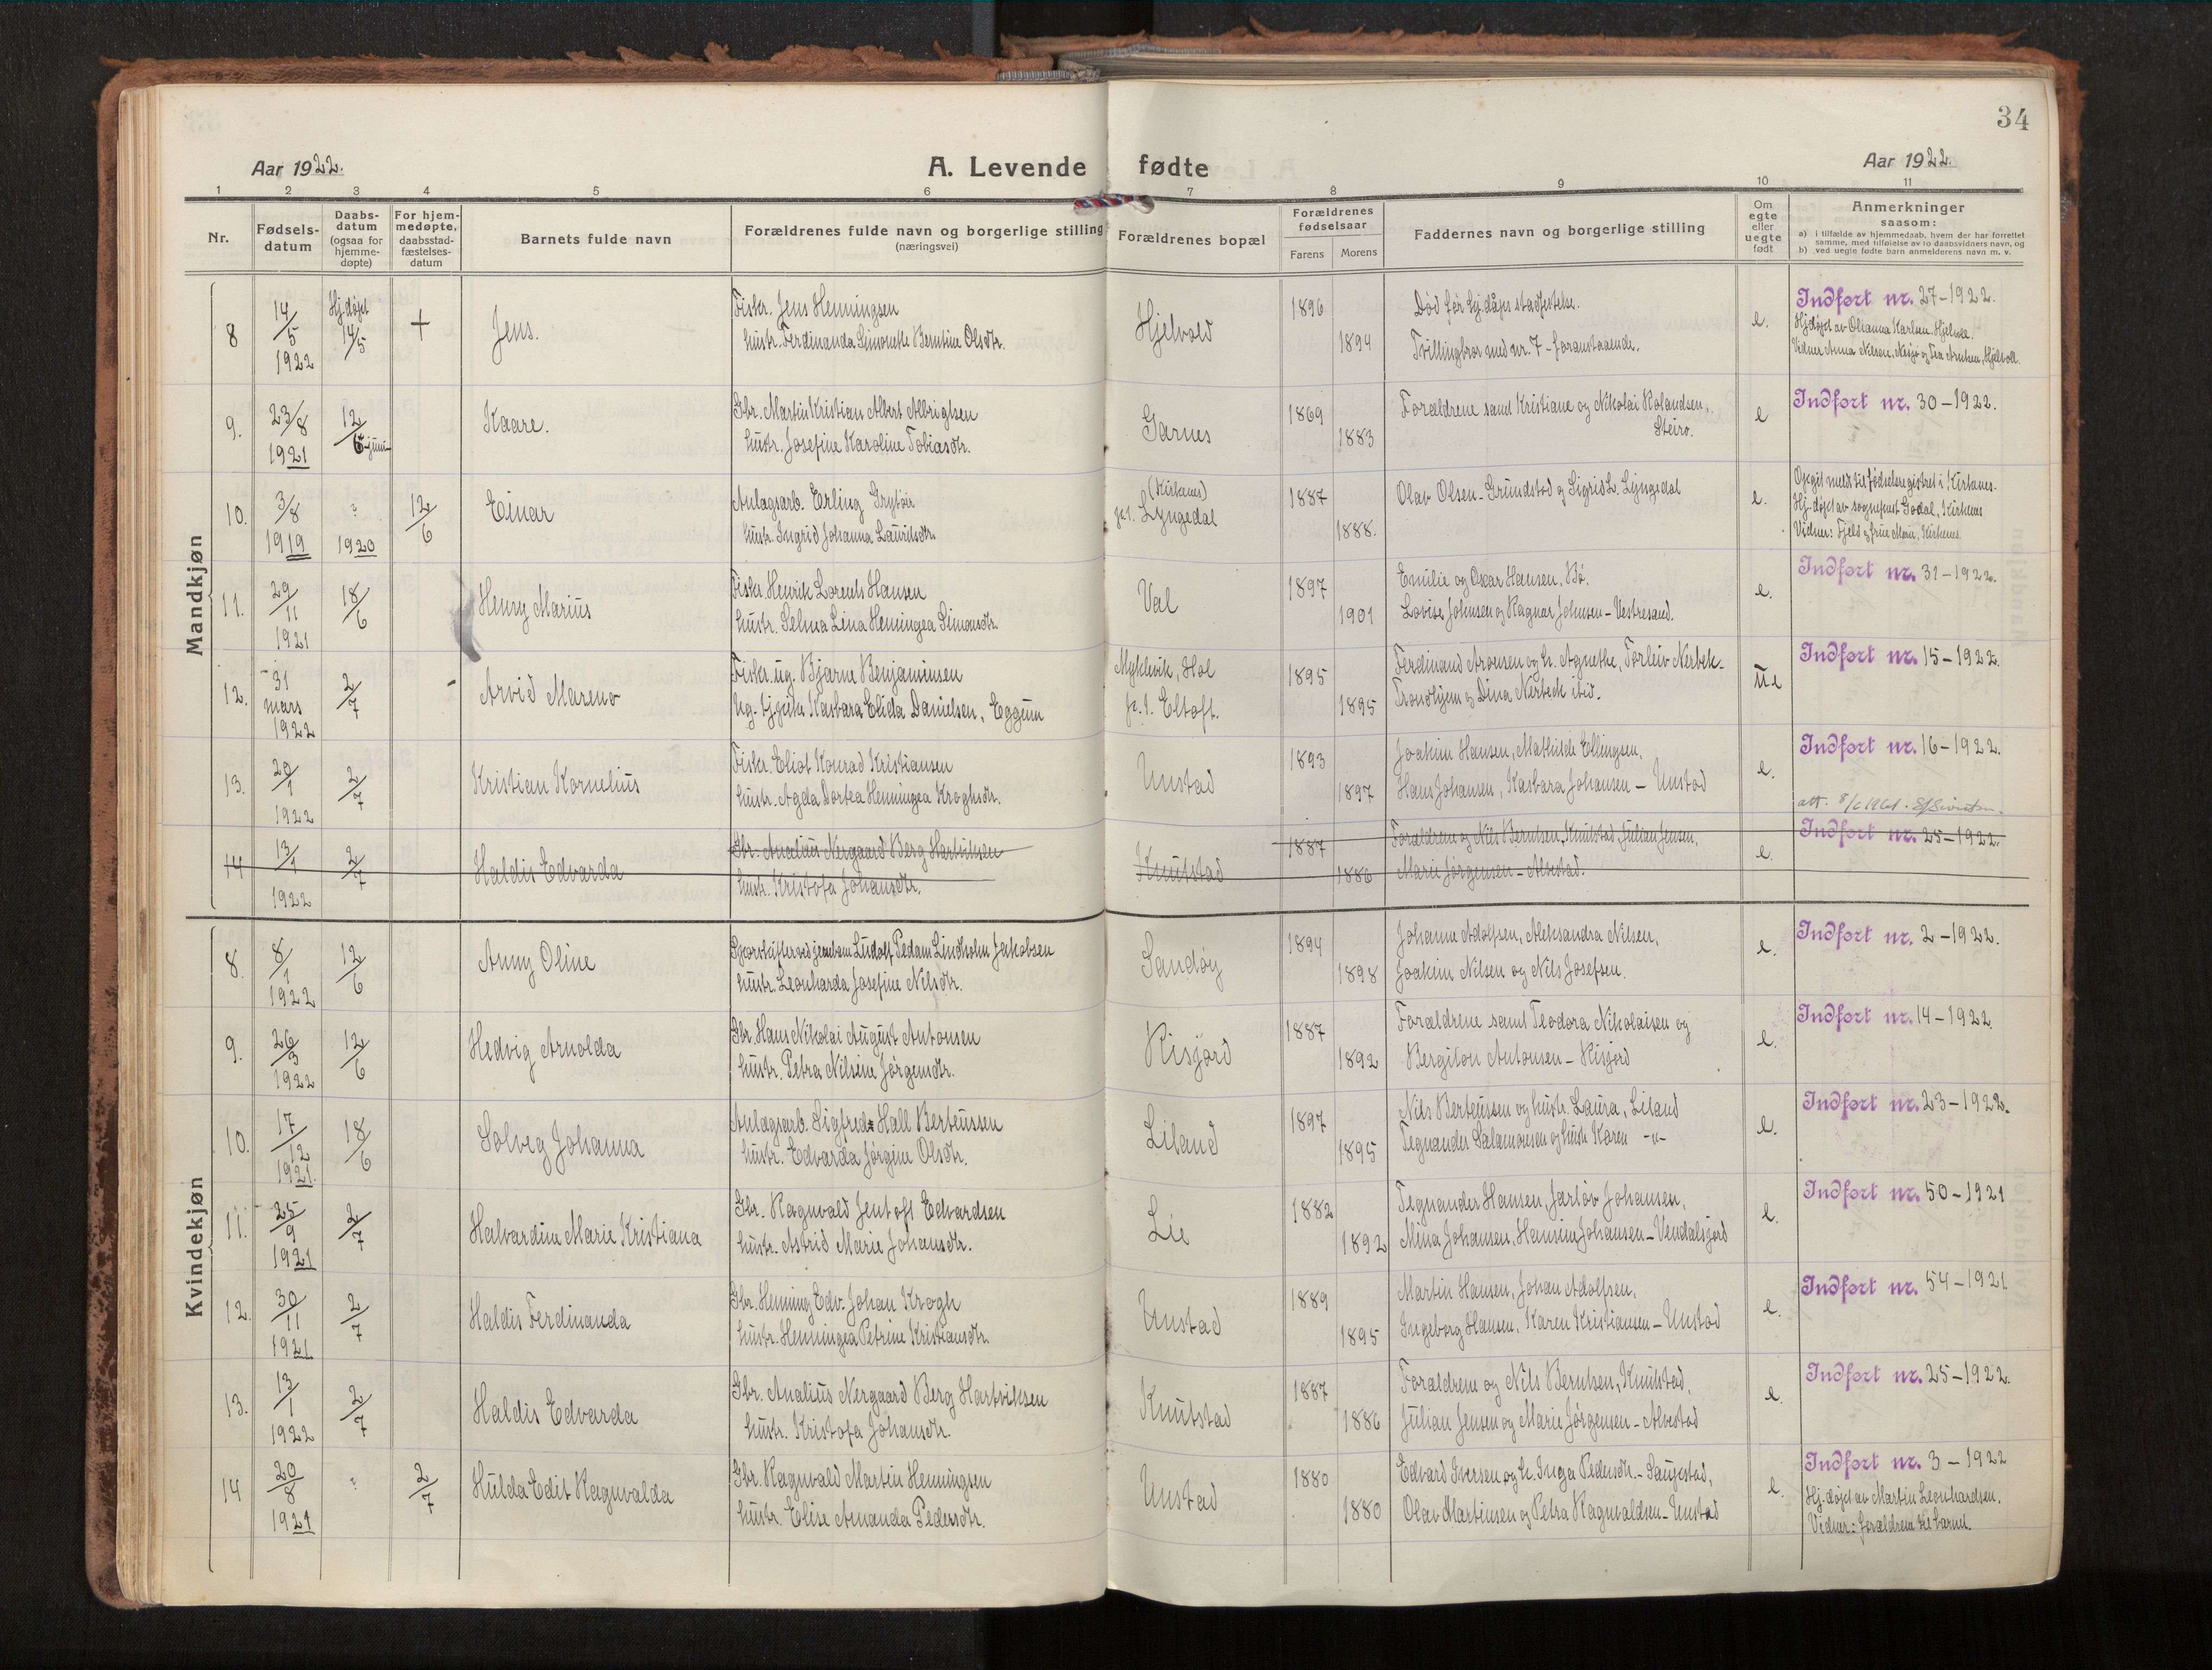 34
Aar 1922.
A. Levende fødte
Aar 1922.
1 2 3 4 5 6 7 8 9 10 11
Nr.
Fødsels-
datum
Daabs-
datum
(ogsaa for
hjemme-
døpte)
For hjem-
medøpte,
daabsstad-
fæstelses-
datum
Barnets fulde navn
Forældrenes fulde navn og borgerlige stilling
(næringsvei)
Forældrenes bopæl
Forældrenes
fødselsaar
Farens
Morens
Faddernes navn og borgerlige stilling
Om
egte
eller
uegte
født
Anmerkninger
saasom:
a) i tilfælde av hjemmedaab, hvem der har forrettet
samme, med tilføielse av to daabsvidners navn, og
b) ved uegte fødte barn anmelderens navn m. v.
Mandkjøn
8
14/5
1922
Hj.døpt
14/5
+
Jens.
Fiskr. Jens Henningsen
hustr. Ferdinanda Simonette Berntine Olsdtr.
Hjelvold
1896
1894
Død før hj.dåps stadfestelse.
Tvillingbror med nr. 7 - foranstaaende.
e.
Indført nr. 27-1922.
Hj.døpt av Olianna Karlsen
Vidner Anna Nilsen,
9.
23/8
1921
12/6 juni
Kaare.
Gbr. Martin Kristian Albert Albrigtsen
hustr. Josefine Karoline Tobiasdtr.
Garnes
1869
1883
Forældrene samt Kristiane og Nikolai Rolandsen,
Steiro.
e
Indført nr. 30-1922.
10.
3/8
1919
"
1920
12/6
Einar
Anlagsarb. Erling Grytøir
hustr. Ingrid Johanna Lauritsdtr.
(Kirkenes)
p.t. Lyngedal
1887
1888.
Olav Olsen - Grundstad og Sigrid L. Lyngedal
e.
Opgit meldt til fødselsregistret i Kirkenes.
Hj.døpt av sogneprest Godal, Kirkenes
Vidner: Fjeld og frue Moen, Kirkenes.
11.
29/11
1921
18/6
Henry Marius
Fiskr. Henrik Lorents Hansen
hustr. Selma Lina Henningea Simonsdtr.
Val
1897
1901
Emilie og Oscar Hansen, Bø.
Lovise Johnsen og Ragnar Johnsen - Vestresand.
e.
Indført nr. 31-1922.
12.
31
mars
1922
2/7
Arvid Mareno
Fiskr. ug. Bjarne Benjaminsen
Ug. tjgjente Kasbara Elida Danielsen, Eggum
Myklevik, Hol
p.t. Eltoft.
1895
1895
Ferdinand Aronsen og h. Agnethe, Torleiv Nerbek-
Trondhjem og Dina Nerbeck ibid.
ue
Indført nr. 15-1922.
13.
20/1
1922
2/7
Kristian Kornelius
Fiskr. Eliot Konrad Kristiansen
hustr. Agda Dortea Henningea Kroghsdtr.
Unstad
1893
1897
Joakim Hansen, Mathilde Ellingsen,
Hans Johansen, Kasbara Johansen - Unstad
e.
Indført nr. 16-1922.
att. 8/6 1961.
14
13/1
1922
2/7
Haldis Edvarda
Gbr. Analius Nergaard Berg Hartviksen
hustr. Kristofa Johansdtr.
Knutstad
1887
1886
Forældrene og Nils Berntsen, Knutstad, Julian Jensen,
Marie Jørgensen - Alvestad.
e.
Indført nr. 25-1922.
Kvindekjøn
8.
8/1
1922
12/6
Anny Oline
Ludolf Pedam Lindholm Jakobsen
hustr. Leonharda Josefine Nilsdtr.
Sandøy
1894
1898
Johanna Adolfsen, Aleksandra Nilsen,
Joakim Nilsen og Nils Josefsen.
e.
Indført nr. 2-1922.
9.
26/3
1922
12/6
Hedvig Arnolda
Gbr. Hans Nikolai August Antonsen
hustr. Petra Nilsine Jørgensdtr.
Risjord
1887
1892
Forældrene samt Teodora Nikolaisen og
Bergiton Antonsen - Risjord
e.
Indført nr. 14-1922.
10.
17/12
1921
18/6
Solveg Johanna
Anlægsarb. Sigfred Hall Berteussen
hustr. Edvarda Jørgine Olsdtr.
Liland
1897
1895
Nils Berteussen og hustr. Laura, Liland
Tegnander Salamonsen og hustr. Karen -"-
e.
Indført nr. 23-1922.
11.
25/9
1921
2/7
Halvardine Marie Kristiana
Gbr. Ragnvald Jentoft Edvardsen
hustr. Astrid Marie Johansdtr.
Lie
1882
1892
Tegnander Hansen, Jærløv Johansen,
Mina Johansen, Hansine Johansen - Vendalsjord
e.
Indført nr. 50-1921
12.
30/11
1921
2/7
Haldis Ferdinanda
Gbr. Henning Edv. Johan Krogh
hustr. Henningea Petrine Kristiansdtr.
Unstad
1889
1895
Martin Hansen, Johan Adolfsen,
Ingeborg Hansen, Karen Kristiansen - Unstad
e.
Indført nr. 54-1921
13.
13/1
1922
2/7
Haldis Edvarda
Gbr. Analius Nergaard Berg Hartviksen
hustr. Kristofa Johansdtr.
Knutstad
1887
1886
Forældrene og Nils Berntsen, Knutstad,
Julian Jensen og Marie Jørgensen - Alvestad
e.
Indført nr. 25-1922.
14
20/8
1921
"
2/7
Hulda Edit Ragnvalda
Gbr. Ragnvald Martin Henningsen
hustr. Elise Amanda Pedersdtr.
Unstad
1880
1880
Edvard Iversen og h. Inga Pedersdtr. - Saupstad,
Olav Martinsen og Petra Ragnvaldsen - Unstad
e.
Indført nr. 3-1922
Hj.døpt av Martin Leonhardsen.
Vidner: forældrene til barnet.